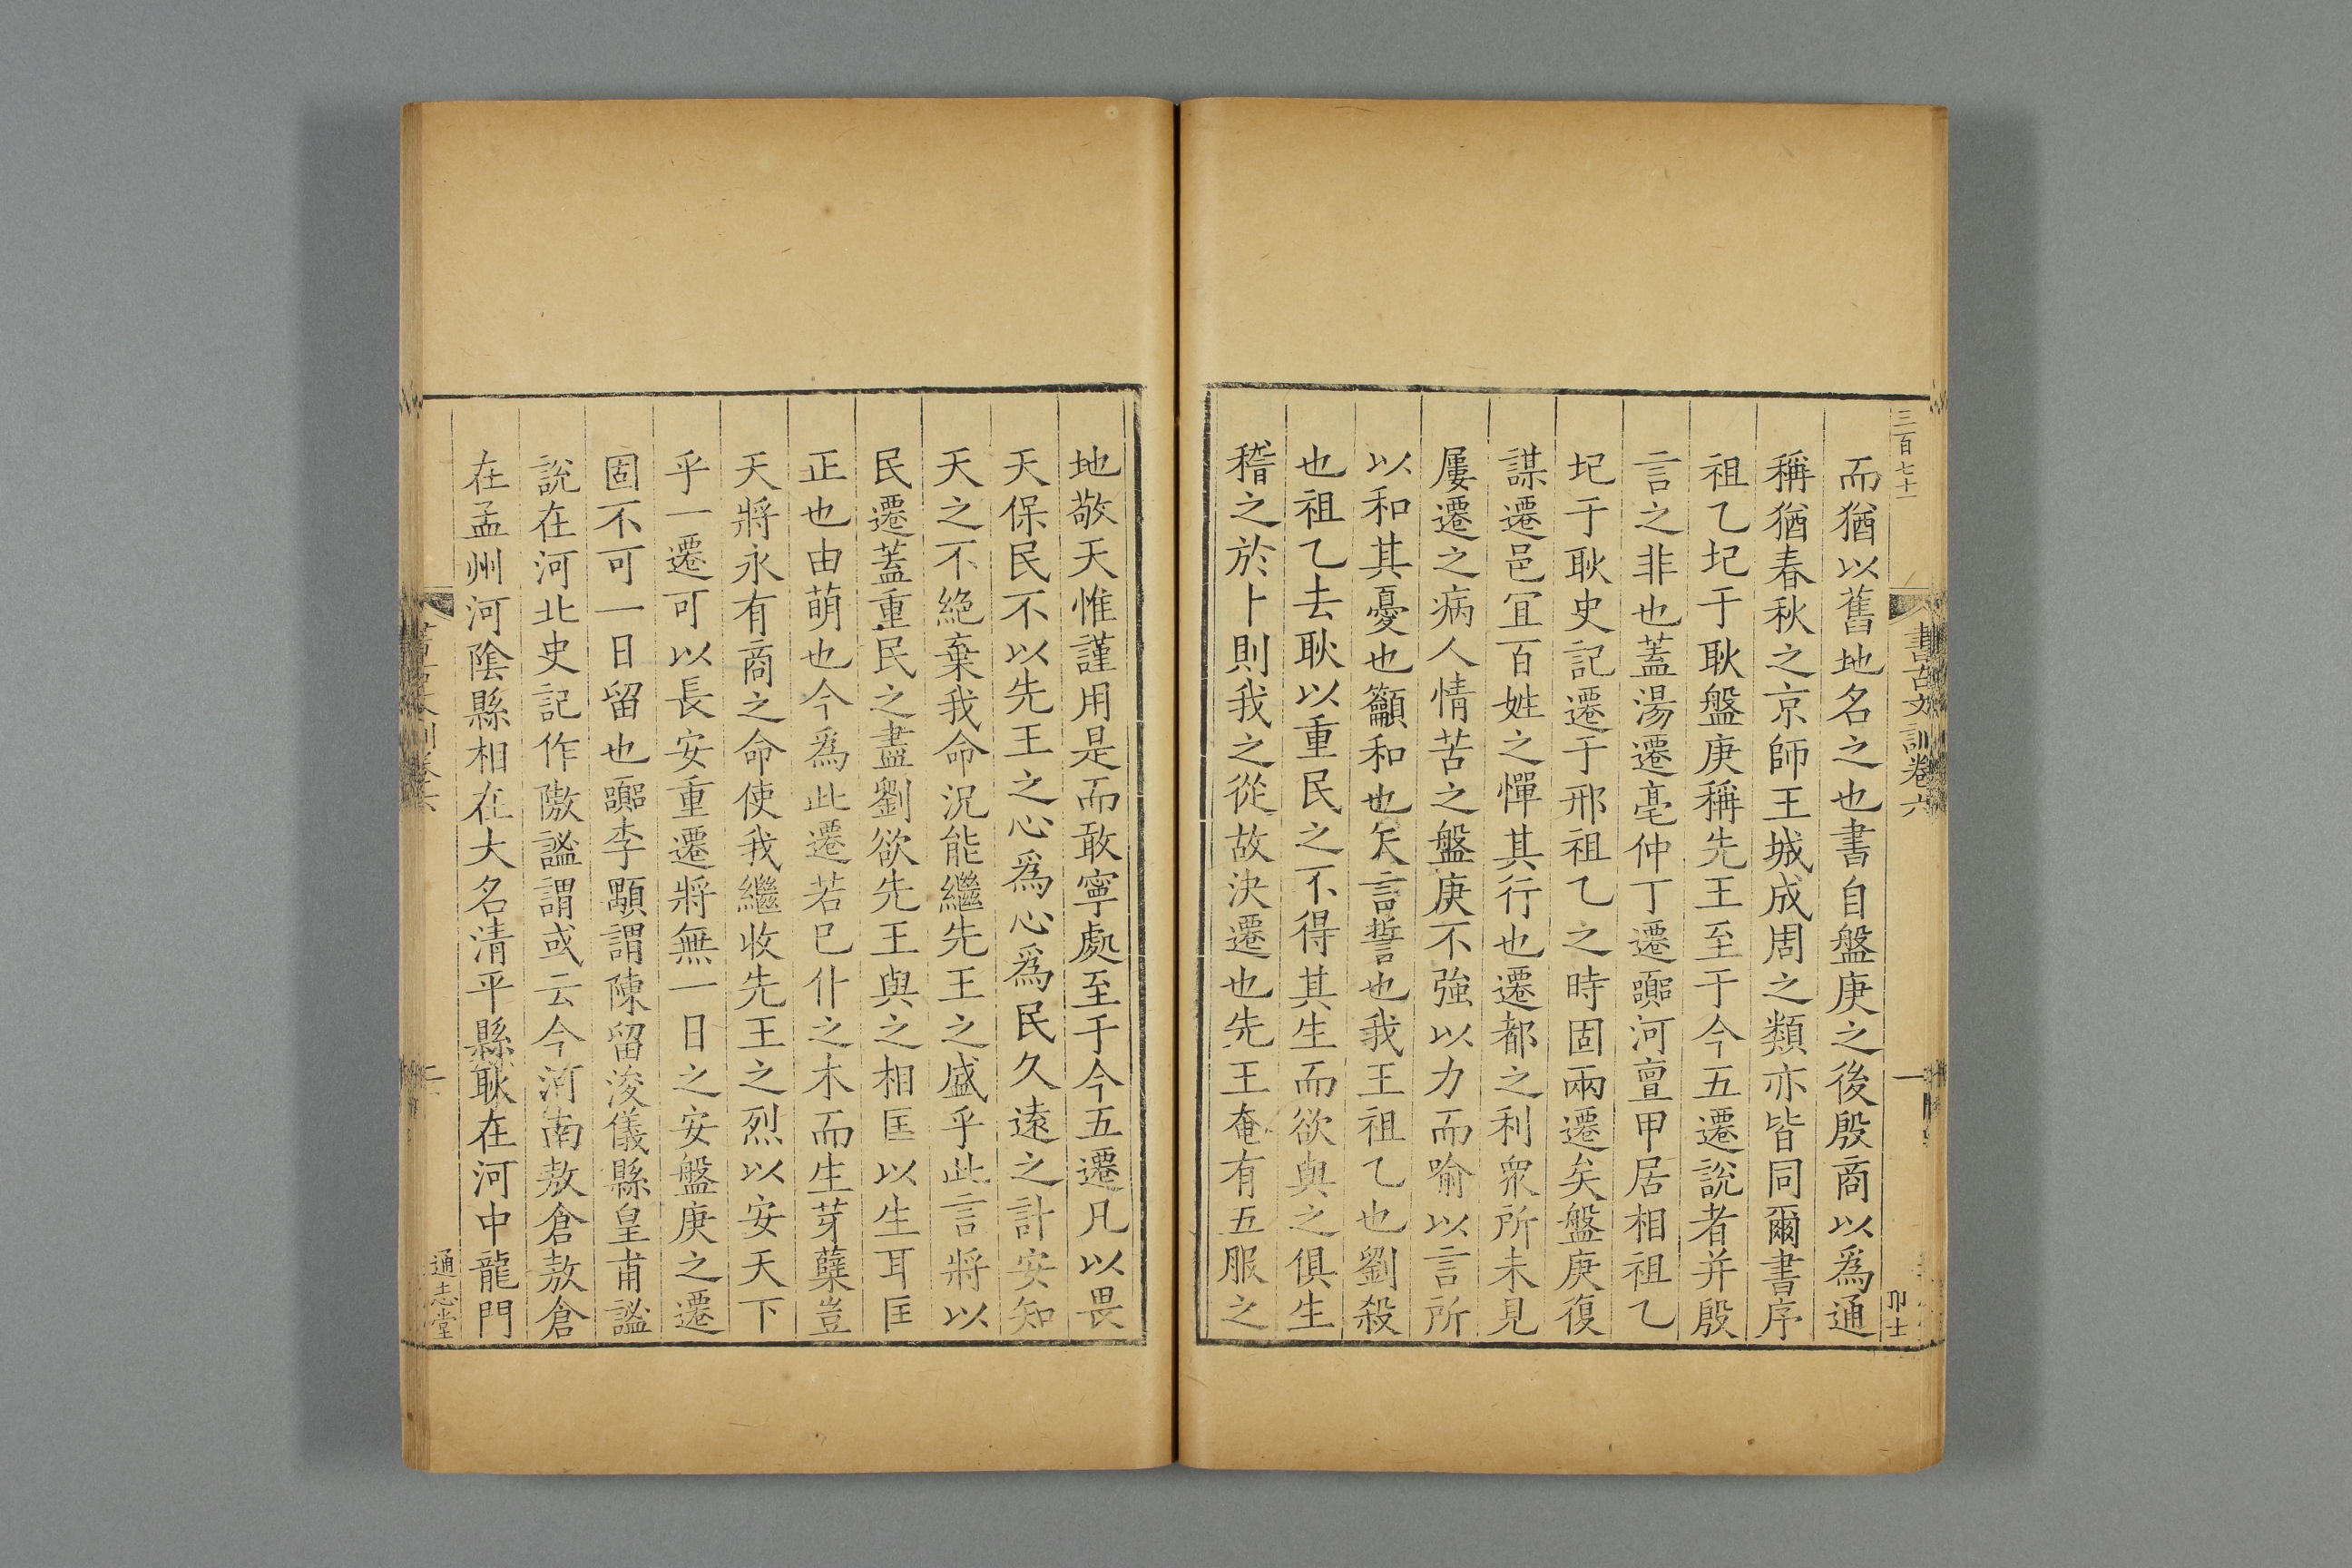 三百七十
書古文訓卷六
一
卯士
而猶以舊地名之也書自盤庚之後殷商以爲通
稱猶春秋之京師王城成周之類亦皆同爾書序
祖乙圮于耿盤庚稱先王至于今五遷說者并殷
言之非也蓋湯遷亳仲丁遷嚻河亶甲居相祖乙
圮于耿史記遷于邢祖乙之時固兩遷矣盤庚復
謀遷邑宜百姓之憚其行也遷都之利衆所未見
屢遷之病人情苦之盤庚不強以力而喻以言所
以和其憂也籲和也矢言誓也我王祖乙也劉殺
也祖乙去耿以重民之不得其生而欲與之俱生
稽之於卜則我之從故決遷也先王奄有五服之
地敬天惟謹用是而敢寧處至于今五遷凡以畏
天保民不以先王之心爲心爲民久遠之計安知
天之不絶棄我命況能繼先王之盛乎此言將以
民遷蓋重民之盡劉欲先王與之相匡以生耳匡
正也由萌也今爲此遷若已仆之木而生芽蘖豈
天將永有商之命使我繼收先王之烈以安天下
乎一遷可以長安重遷將無一日之安盤庚之遷
固不可一日留也嚻李顒謂陳留浚儀縣皇甫謐
說在河北史記作隞謐謂或云今河南敖倉敖倉
在孟州河陰縣相在大名清平縣耿在河中龍門
通志堂